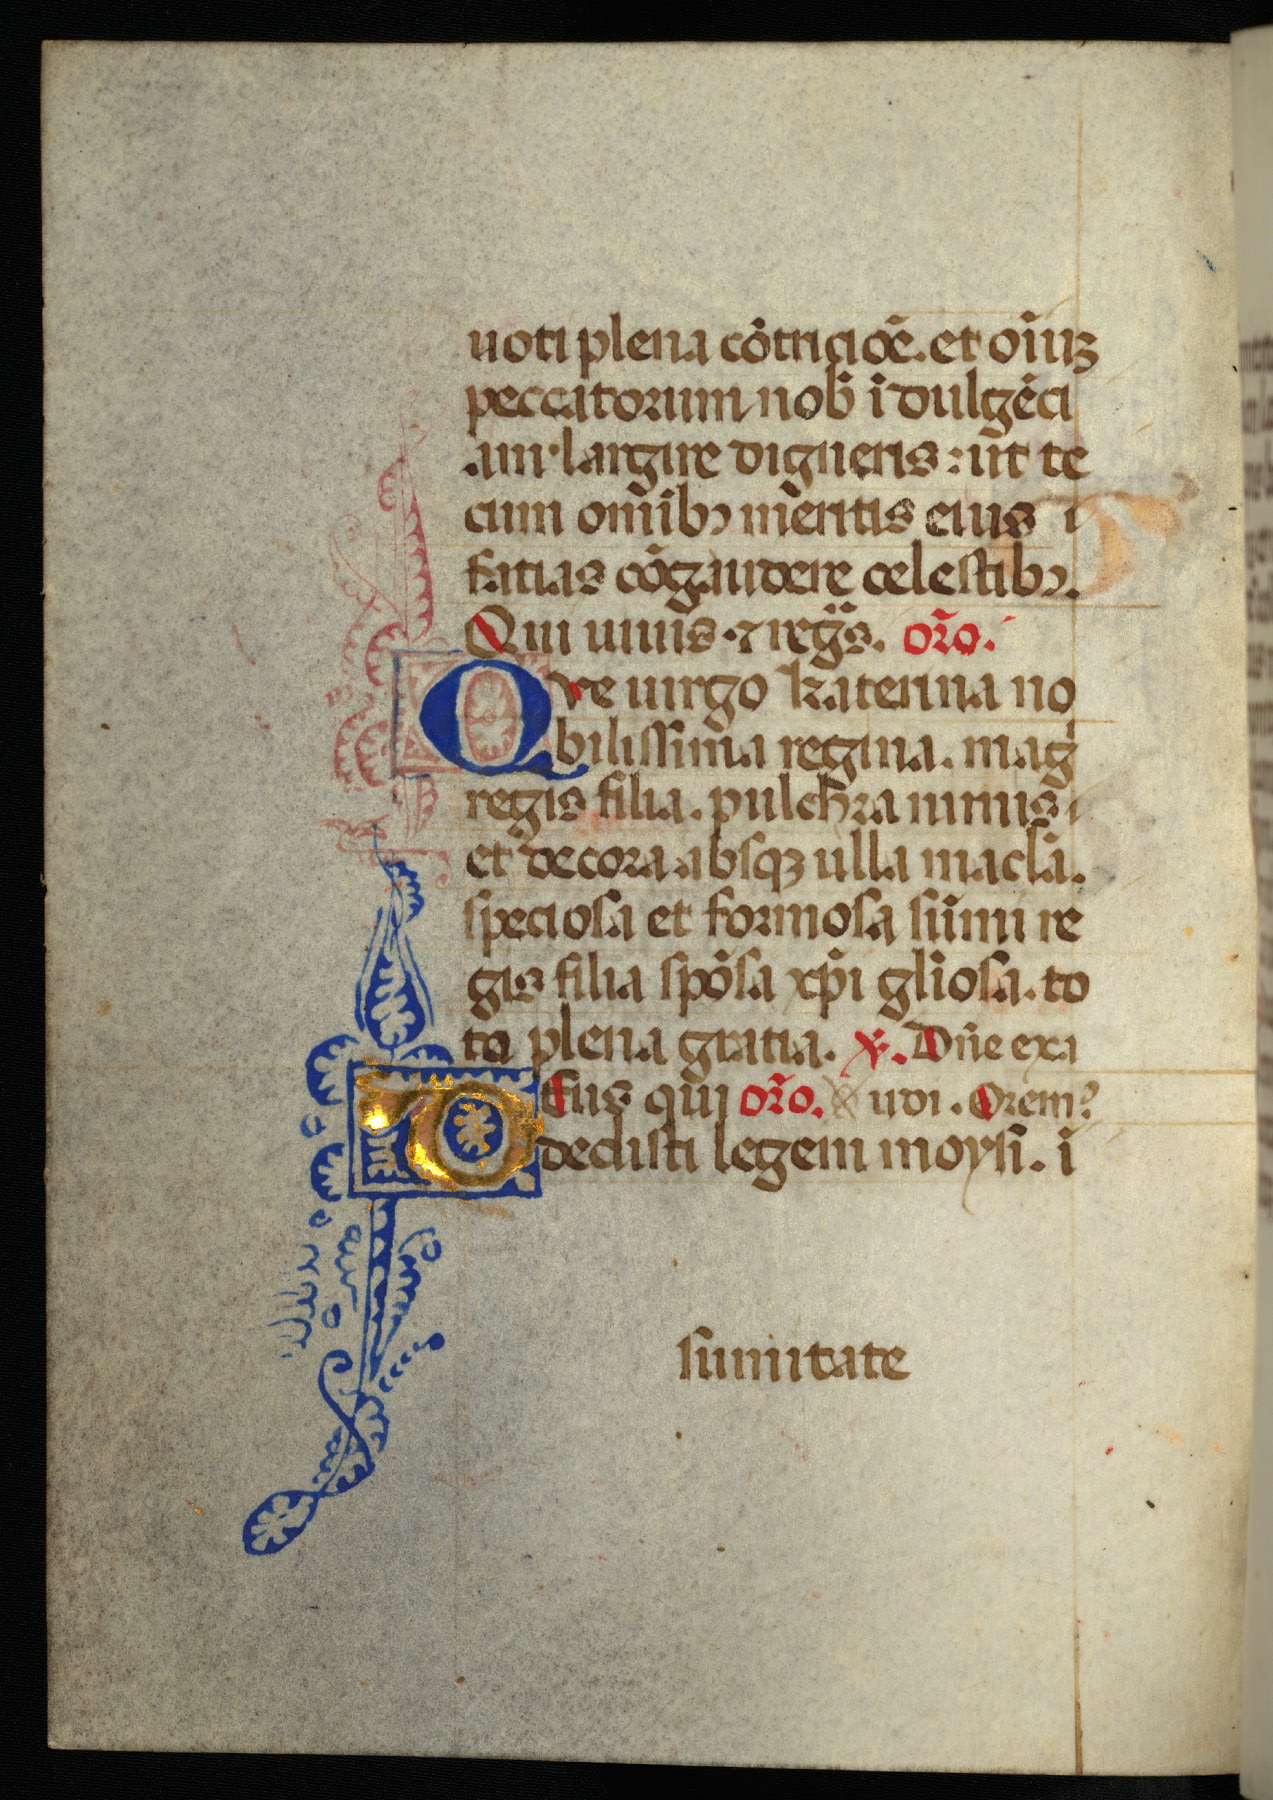 uoti plena cōtriciōē. et oīūꝫ
peccatorum nob̄ īdulgēci
am largire digneris : ut te
cum om̄ibꝰ meritis eius ī
fatias cōgaudere celestibꝰ.
Qui uiuis ⁊ reg̃s. or̄o.
Que uirgo katerina no
bilissima regina. mag
regis filia. pulchra nimis
et decora absqꝫ ulla macl̄a.
speciosa et formosa sūmi re
gis filia spōsa xp̄i gl̄iosa. to
ta plena gratia. ℣. Dn̄e exa
udi. Orem
Deus qui or̄o.
dedisti legem moysi. ī
sūmitate